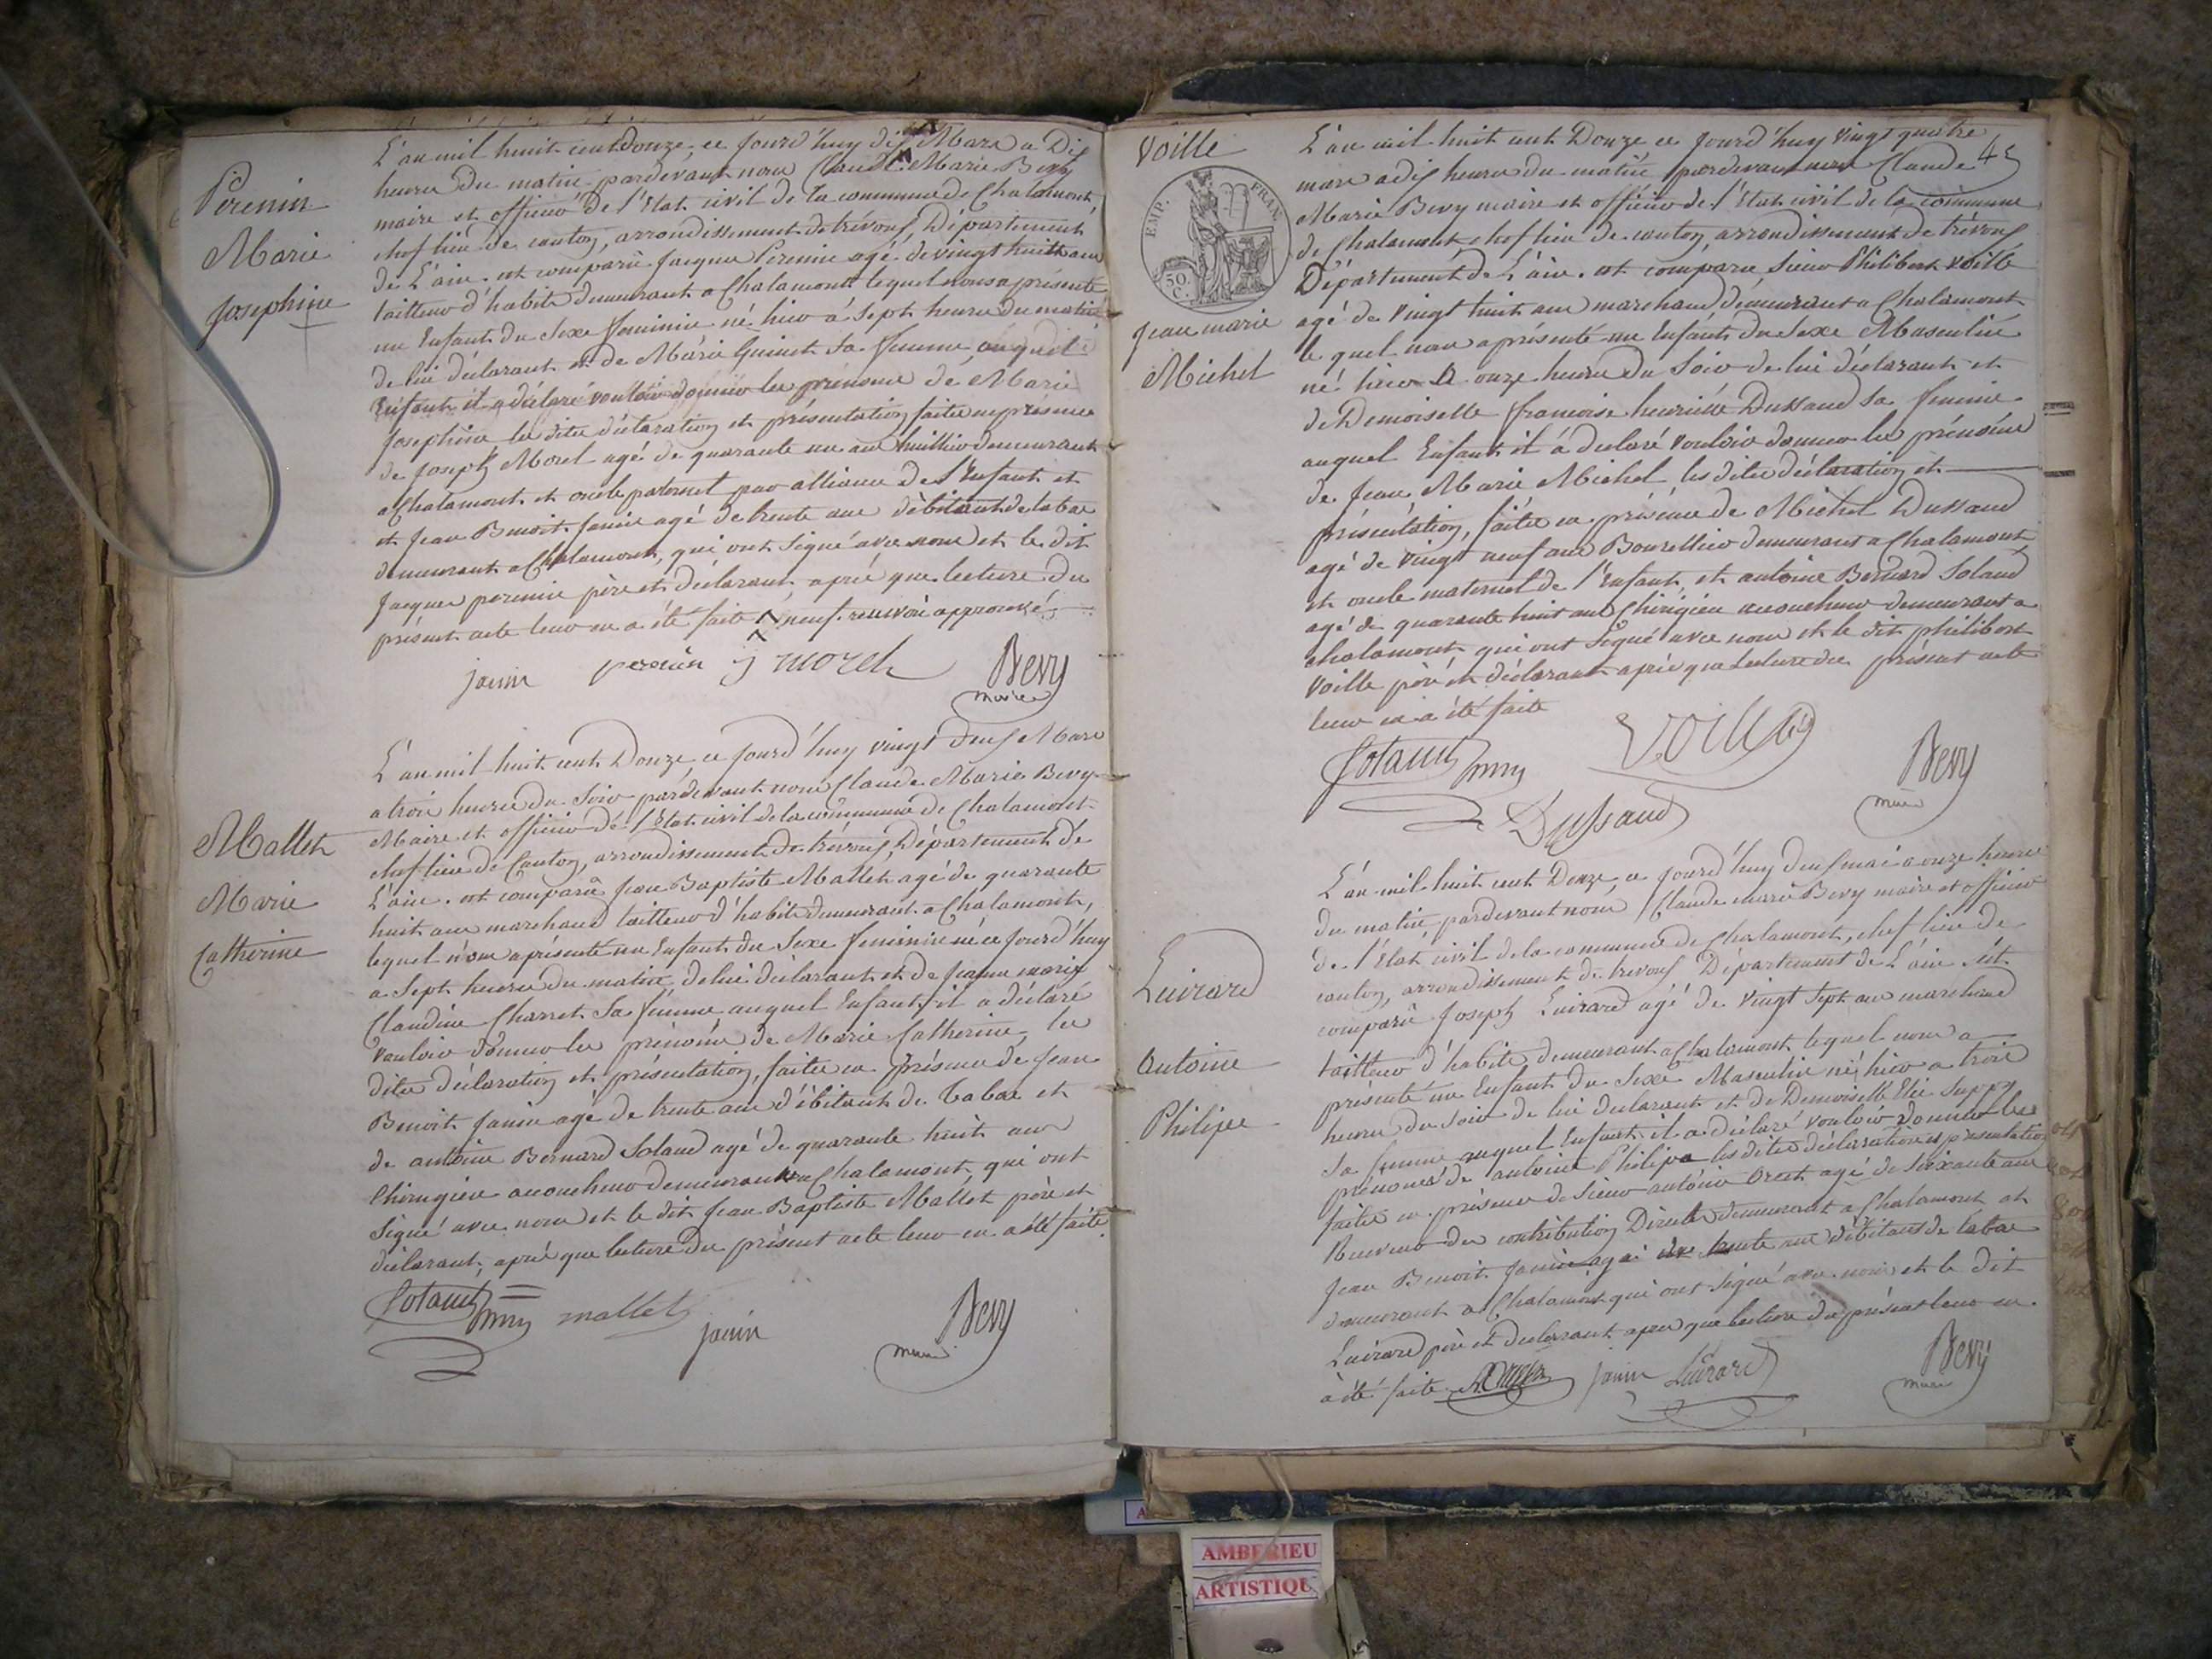 Perenin
Marie
Josephine
L'an mil huit cent douze, ce jourd'huy dix Mars a Dix
heures du matin pardevant nous Claude Marie Bevy
maire et officier de l'Etat civil de la commune de Chalamont,
chef lieu de canton, arrondissement de trévoux, Département
de L'ain. est comparû Jacques Perenin agé de vingt huit ans
tailleur d'habits demeurant a Chalamont lequel nous a présenté
un Enfant du Sexe feminin né hier à Sept heures du matin
de lui déclarant et de Marie Guinet Sa femme, auquel
Enfant il a déclaré vouloir donner les prénoms de Marie
Josephine les dites déclaration et présentation faites en présence
de Joseph Morel agé de quarante un ans huillier demeurant
a Chalamont et oncle paternel par alliance de l'Enfant et
et Jean Benoit Janin agé de trente ans débitant de tabac
demeurant a Chalamont, qui ont Signé avec nous et le dit
Jacques perenin père et déclarant, après que lecture du
présent acte leur en a été faite neuf. renvoi approuvé
janin perenin j morel Bevy
maire
Mallet
Marie
Catherine
L'an mil huit cent Douze ce jourd'huy vingt deux Mars
a trois heures du Soir pardevant nous Claude Marie Bevy
Maire et officier de l'Etat civil de la commune de Chalamont
chef lieu de Canton, arrondissement de trévoux, Département de
L'ain. est comparû Jean Baptiste Mallet agé de quarante
huit ans marchand tailleur d'habits demeurant a Chalamont,
lequel nous a présenté un Enfant du Sexe feminin né ce jourd'huy
a Sept heures du matin, de lui déclarant et de Jeanne marie
Claudine Charret Sa femme, auquel Enfant il a déclaré
vouloir donner les prénoms de Marie Catherine, les
dites déclaration et présentation, faites en présence de Jean
Benoit Janin agé de trente ans débitant de Tabac et
de antoine Bernard Soland agé de quarante huit ans
Chirugien accoucheur demeurant a Chalamont, qui ont
Signé avec nous et le dit Jean Baptiste Mallet père et
déclarant, après que lecture du présent acte leur en a été faite
Soland mallet janin Bevy
maire
Voille
EMP. FRAN.
50.
C.
Jean marie
Michel
45
L'an mil huit cent Douze ce jourd'huy vingt quatre
mars a dix heures du matin pardevant nous Claude
Marie Bevy maire et officier de l'Etat civil de la commune
de Chalamont, chef lieu de canton, arrondissement de trévoux
Département de L'ain. est comparu Sieur Philibert Voille
agé de vingt huit ans marchand demeurant a Chalamont
le quel nous a présenté un Enfant du Sexe Masculin
né hier a onze heures du Soir de lui déclarant et
de Demoiselle françoise henriette Dussaud Sa femme
auquel Enfant il à déclaré vouloir donner les prénoms
de Jean Marie Michel les dites déclaration et
présentation, faites en présence de Michel Dussaud
agé de vingt neuf ans Bourellier demeurant a Chalamont
et oncle maternel de l'Enfant, et antoine Bernard Soland
agé de quarante huit ans Chirugien accoucheur demeurant a
chalamont qui ont Signé avec nous et le dit philibert
Voille père et déclarant après que Lecture du présent acte
leur en a été faite
Soland Voille Bevy
maire
Dussaud
Luivard
Antoine
Philipe
L'an mil huit cent Douze, ce jourd'huy deux mai a onze heures
du matin pardevant nous Claude marie Bevy maire et officier
de l'Etat civil de la commune de Chalamont, chef lieu de
canton, arrondissement de trévoux Département de L'ain. est
comparû Joseph Luivard agé de vingt Sept ans marchand
tailleur d'habits demeurant a Chalamont lequel nous a
présenté un Enfant du Sexe Masculin né hier a trois
heures du Soir de lui déclarant et de Demoiselle
Sa femme auquel Enfant il a déclaré vouloir donner les
prénoms de antoine Philipe les dites déclaration et présentation
faites en présence de Sieur antoine agé de Soixante ans
Receveur des contributions Directes demeurant a Chalamont et
Jean Benoit Janin agé de trente ans débitant de tabac
demeurant a Chalamont qui ont Signé avec nous et le dit
Luivard père et déclarant après que lecture du présent leur en
à été faite janin Luivard Bevy
maire
AMBERIEU
ARTISTIQU